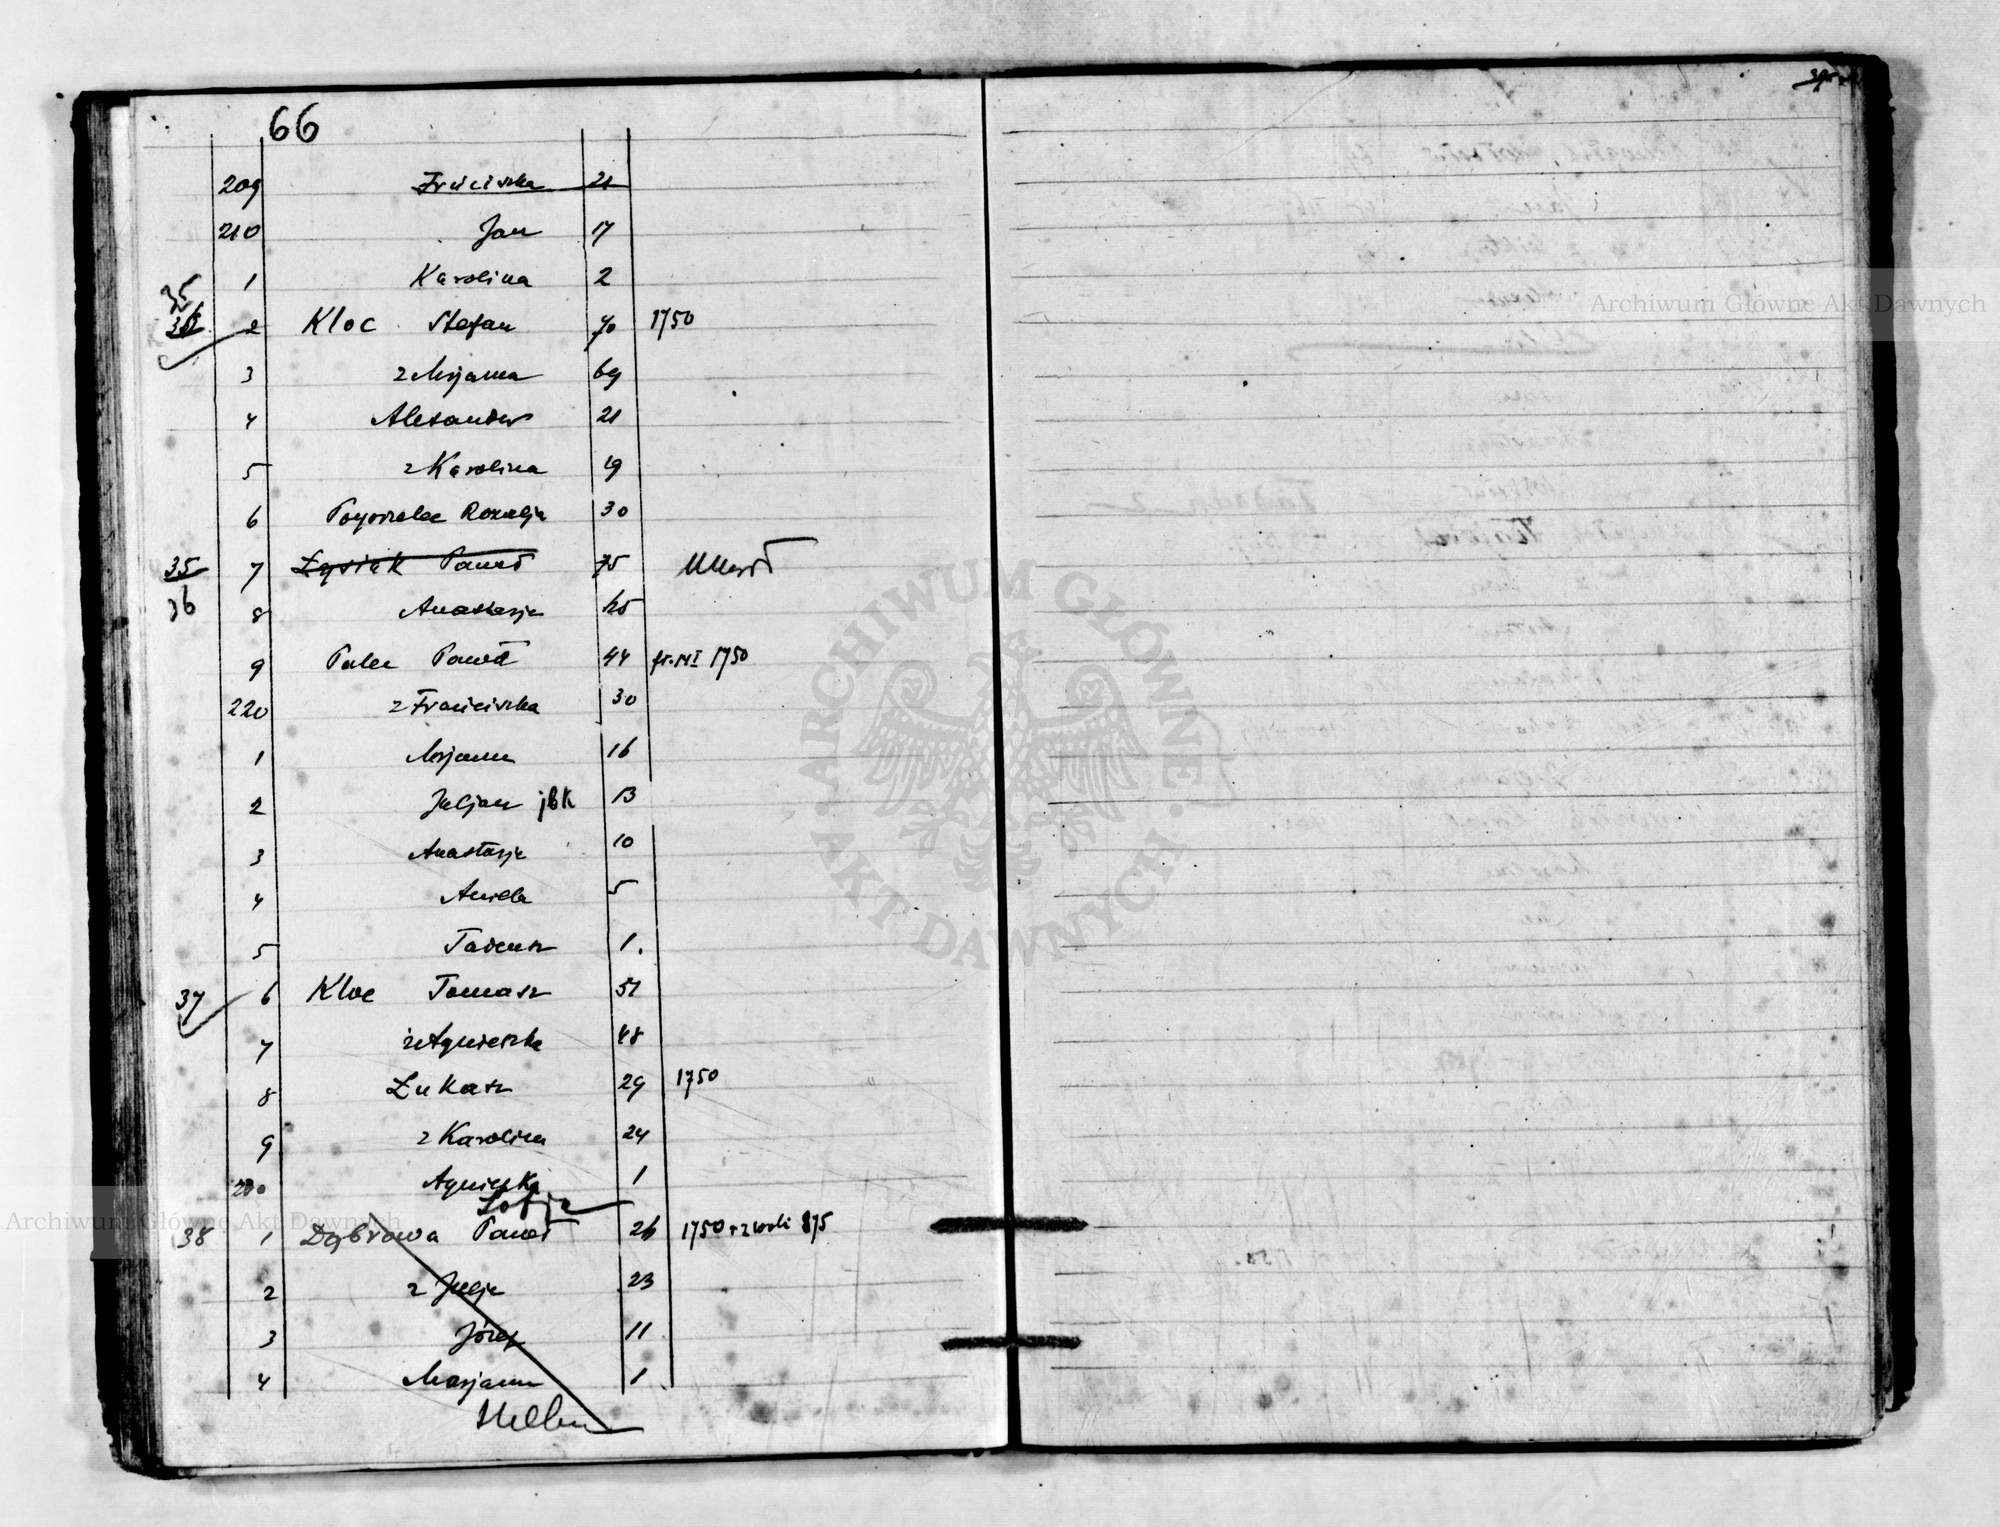 66
209 Frńciszka 21
210 Jan 17
1 Karolina 2
35
36 2 Kloc Stefan 70 1750
3 z Marjanna 69
4 Alexander 21
5 z Karolina 19
6 Rozalja 30
35 7 Łysiak Paweł 75 Umarł
36 8 Anastazja 65
9 Palec Paweł 44 1750
220 z Franciszka 30
1 Marjanna 16
2 Juljan jbk 13
3 Anastazja 10
4 Aniela 5
5 Tadeusz 1.
37 6 Kloc Tomasz 51
7 z Agnieszka 48
8 Łukasz 29 1750
9 z Karolina 24
230 Agnieszka 1
Zofja
38 1 Dąbrowa Paweł 26 1750 z woli 875
2 z Julja 23
3 Józef 11
4 Marjanna 1
Archiwum Główne Akt Dawnych
Archiwum Główne Akt Dawnych
ARCHIWUM GŁÓWNE · AKT DAWNYCH ·